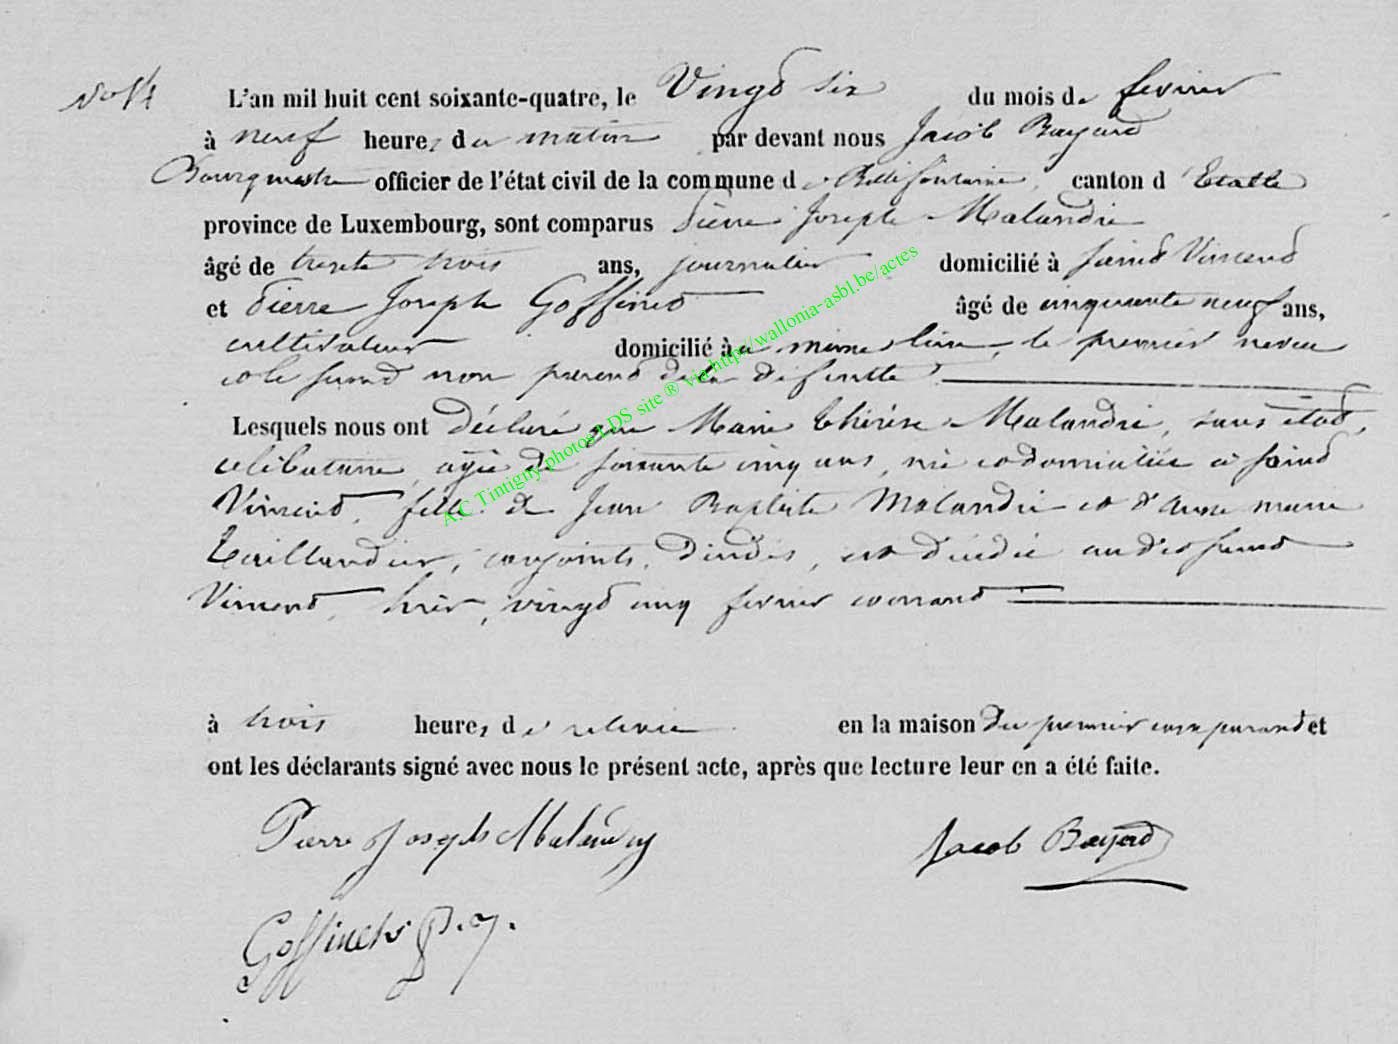 No 14
L'an mil huit cent soixante-quatre, le Vingt six du mois de fevrier
à neuf heures du matin par devant nous Jacob Bayard
Bourgmestre officier de l'état civil de la commune de Bellefontaine, canton d'Etalle
province de Luxembourg, sont comparus Pierre Joseph Malandrie
âgé de trente trois ans, journalier domicilié à Saint Vincent
et Pierre Joseph Goffinet âgé de cinquante neuf ans,
cultivateur domicilié au même lieu, le premier neveu
et le second non parent de la défunte
Lesquels nous ont déclaré que Marie Thérèse Malandrie, sans état,
célibataire, agée de soixante cinq ans, née et domiciliée à Saint
Vincent, fille de Jean Baptiste Malandrie et d'Anne Marie
Taillandier, conjoints, décédés, est décédée audit Saint
Vincent, hier, vingt cinq fevrier courant
à trois heures de relevée en la maison du premier comparant et
ont les déclarants signé avec nous le présent acte, après que lecture leur en a été faite.
Pierre Joseph Jacob Bayard
Goffinet P. J.
A.C Tintigny-photos LDS site ® via http://wallonia-asbl.be/actes